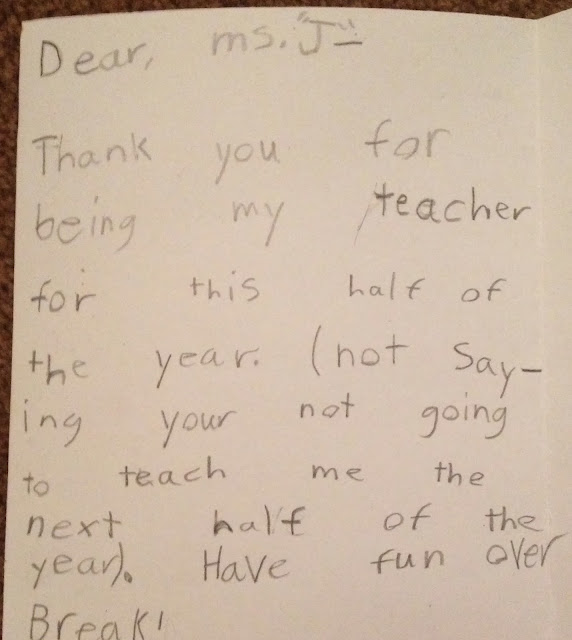 Dear, ms. "J"
Thank you for
being my teacher
for this half of
the year. (not Say-
ing your not going
to teach me the
next half of the
year). Have fun over
Break!